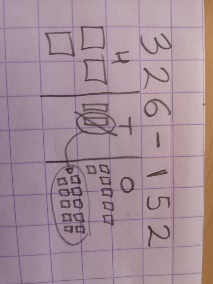 326-152
H T O